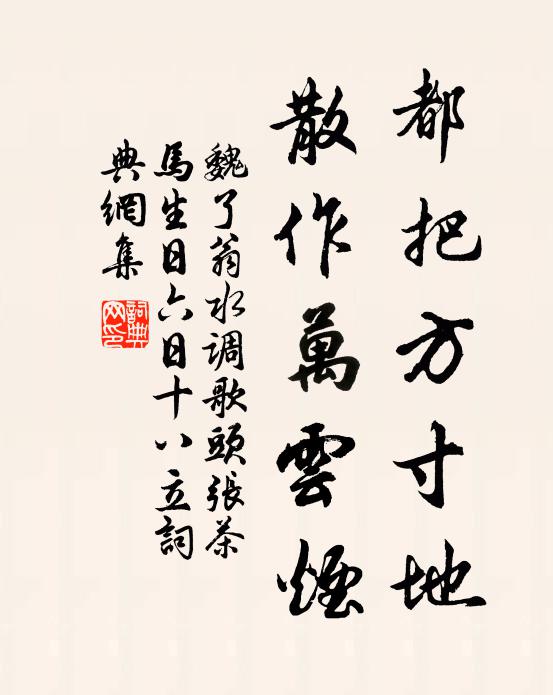 都把方寸地
散作萬雲煙
魏了翁水调歌頭張茶
馬生日六日十八立詞
典網集
詞典网印